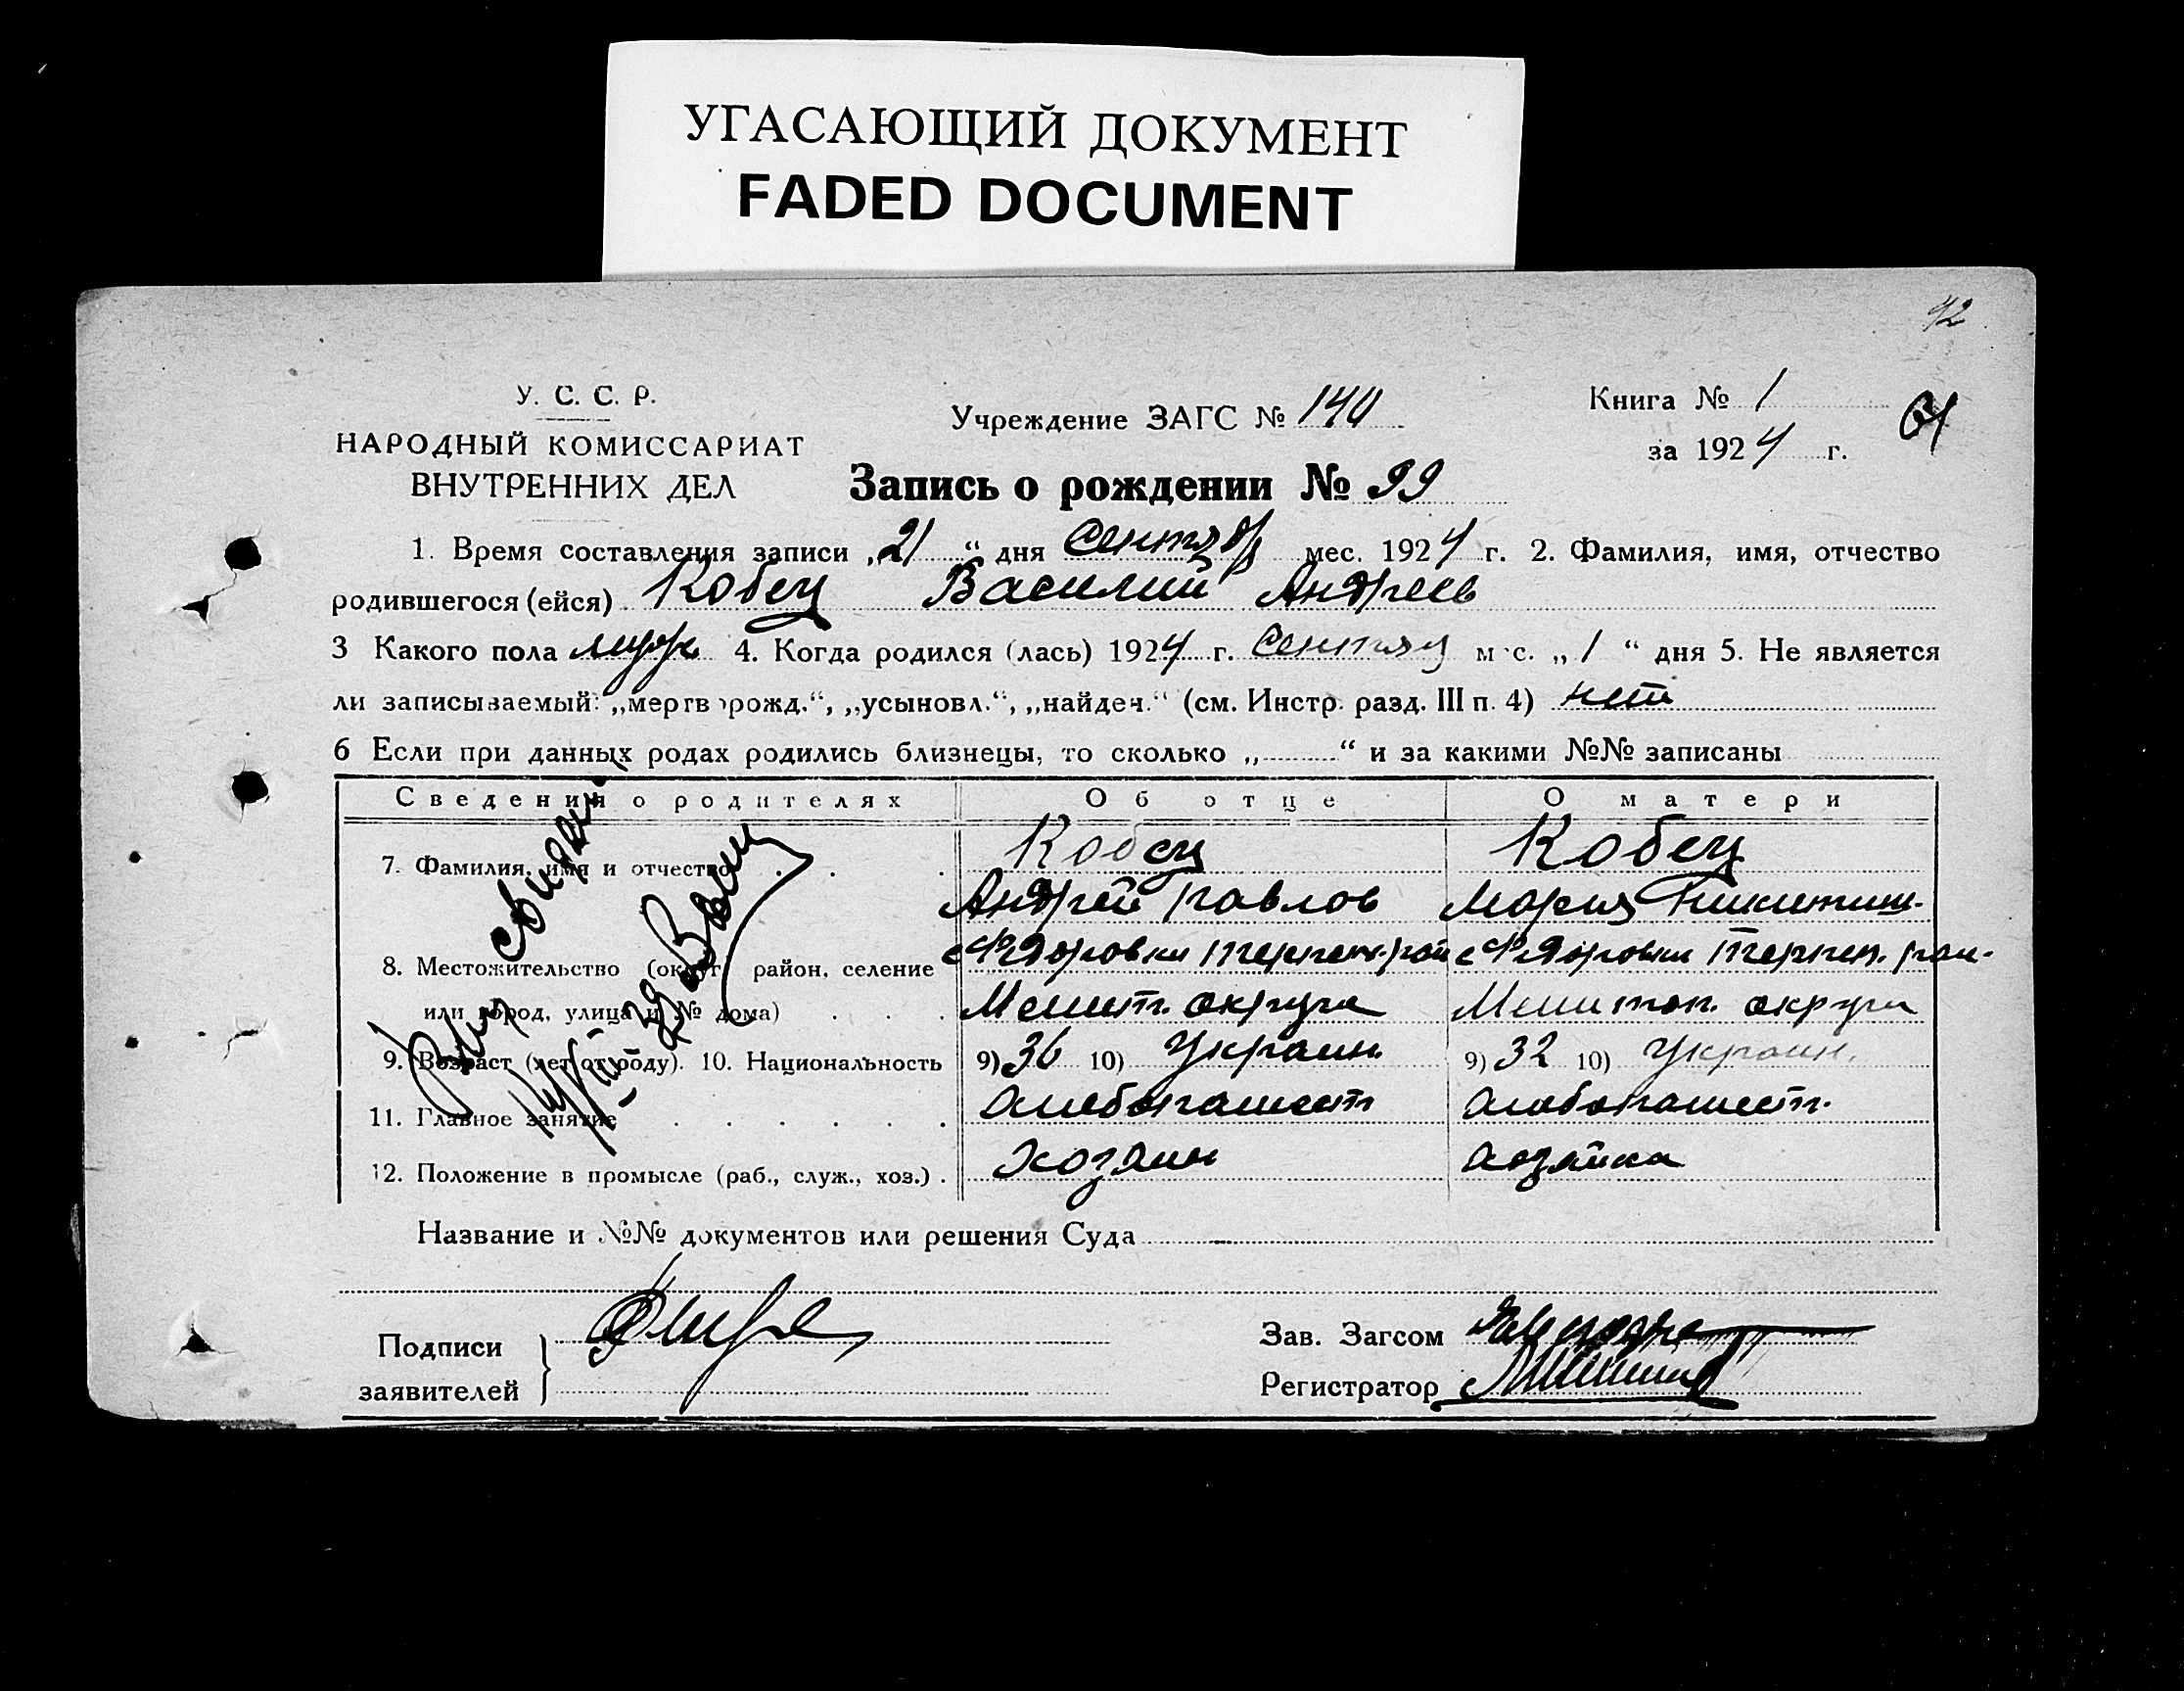 УГАСАЮЩИЙ ДОКУМЕНТ
FADED DOCUMENT
42
У. С. С. Р.
НАРОДНЫЙ КОМИССАРИАТ
ВНУТРЕННИХ ДЕЛ
Учреждение ЗАГС № 140
Книга № 1
за 1924 г.
Запись о рождении № 99
1. Время составления записи „21“ дня Сентябр мес. 1924 г. 2. Фамилия, имя, отчество
родившегося (ейся) Кобец Василий Андреев
3 Какого пола муж 4. Когда родился (лась) 1924 г. Сентяб мес. „1“ дня 5. Не является
ли записываемый: „мертворожд.“, „усыновл.“, „найден.“ (см. Инстр. разд. III п. 4) нет
6 Если при данных родах родились близнецы, то сколько „ “ и за какими №№ записаны
Сведения о родителях Об отце О матери
7. Фамилия, имя и отчество Кобец Кобец
Андрей Павлов Мария Никитиш.
8. Местожительство (округ, район, селение с Фёдоровки Терпен. рай с Фёдоровки Терпен. рай.
или город, улица и № дома) Мелит. округа Мелитоп. округа
9. Возраст (лет от роду). 10. Национальность 9) 36 10) Украин. 9) 32 10) Украин.
11. Главное занятие Хлебопашест Хлебопашест.
12. Положение в промысле (раб., служ., хоз.) Хозяин Хозяйка
Название и №№ документов или решения Суда —
Подписи
заявителей
Зав. Загсом
Регистратор